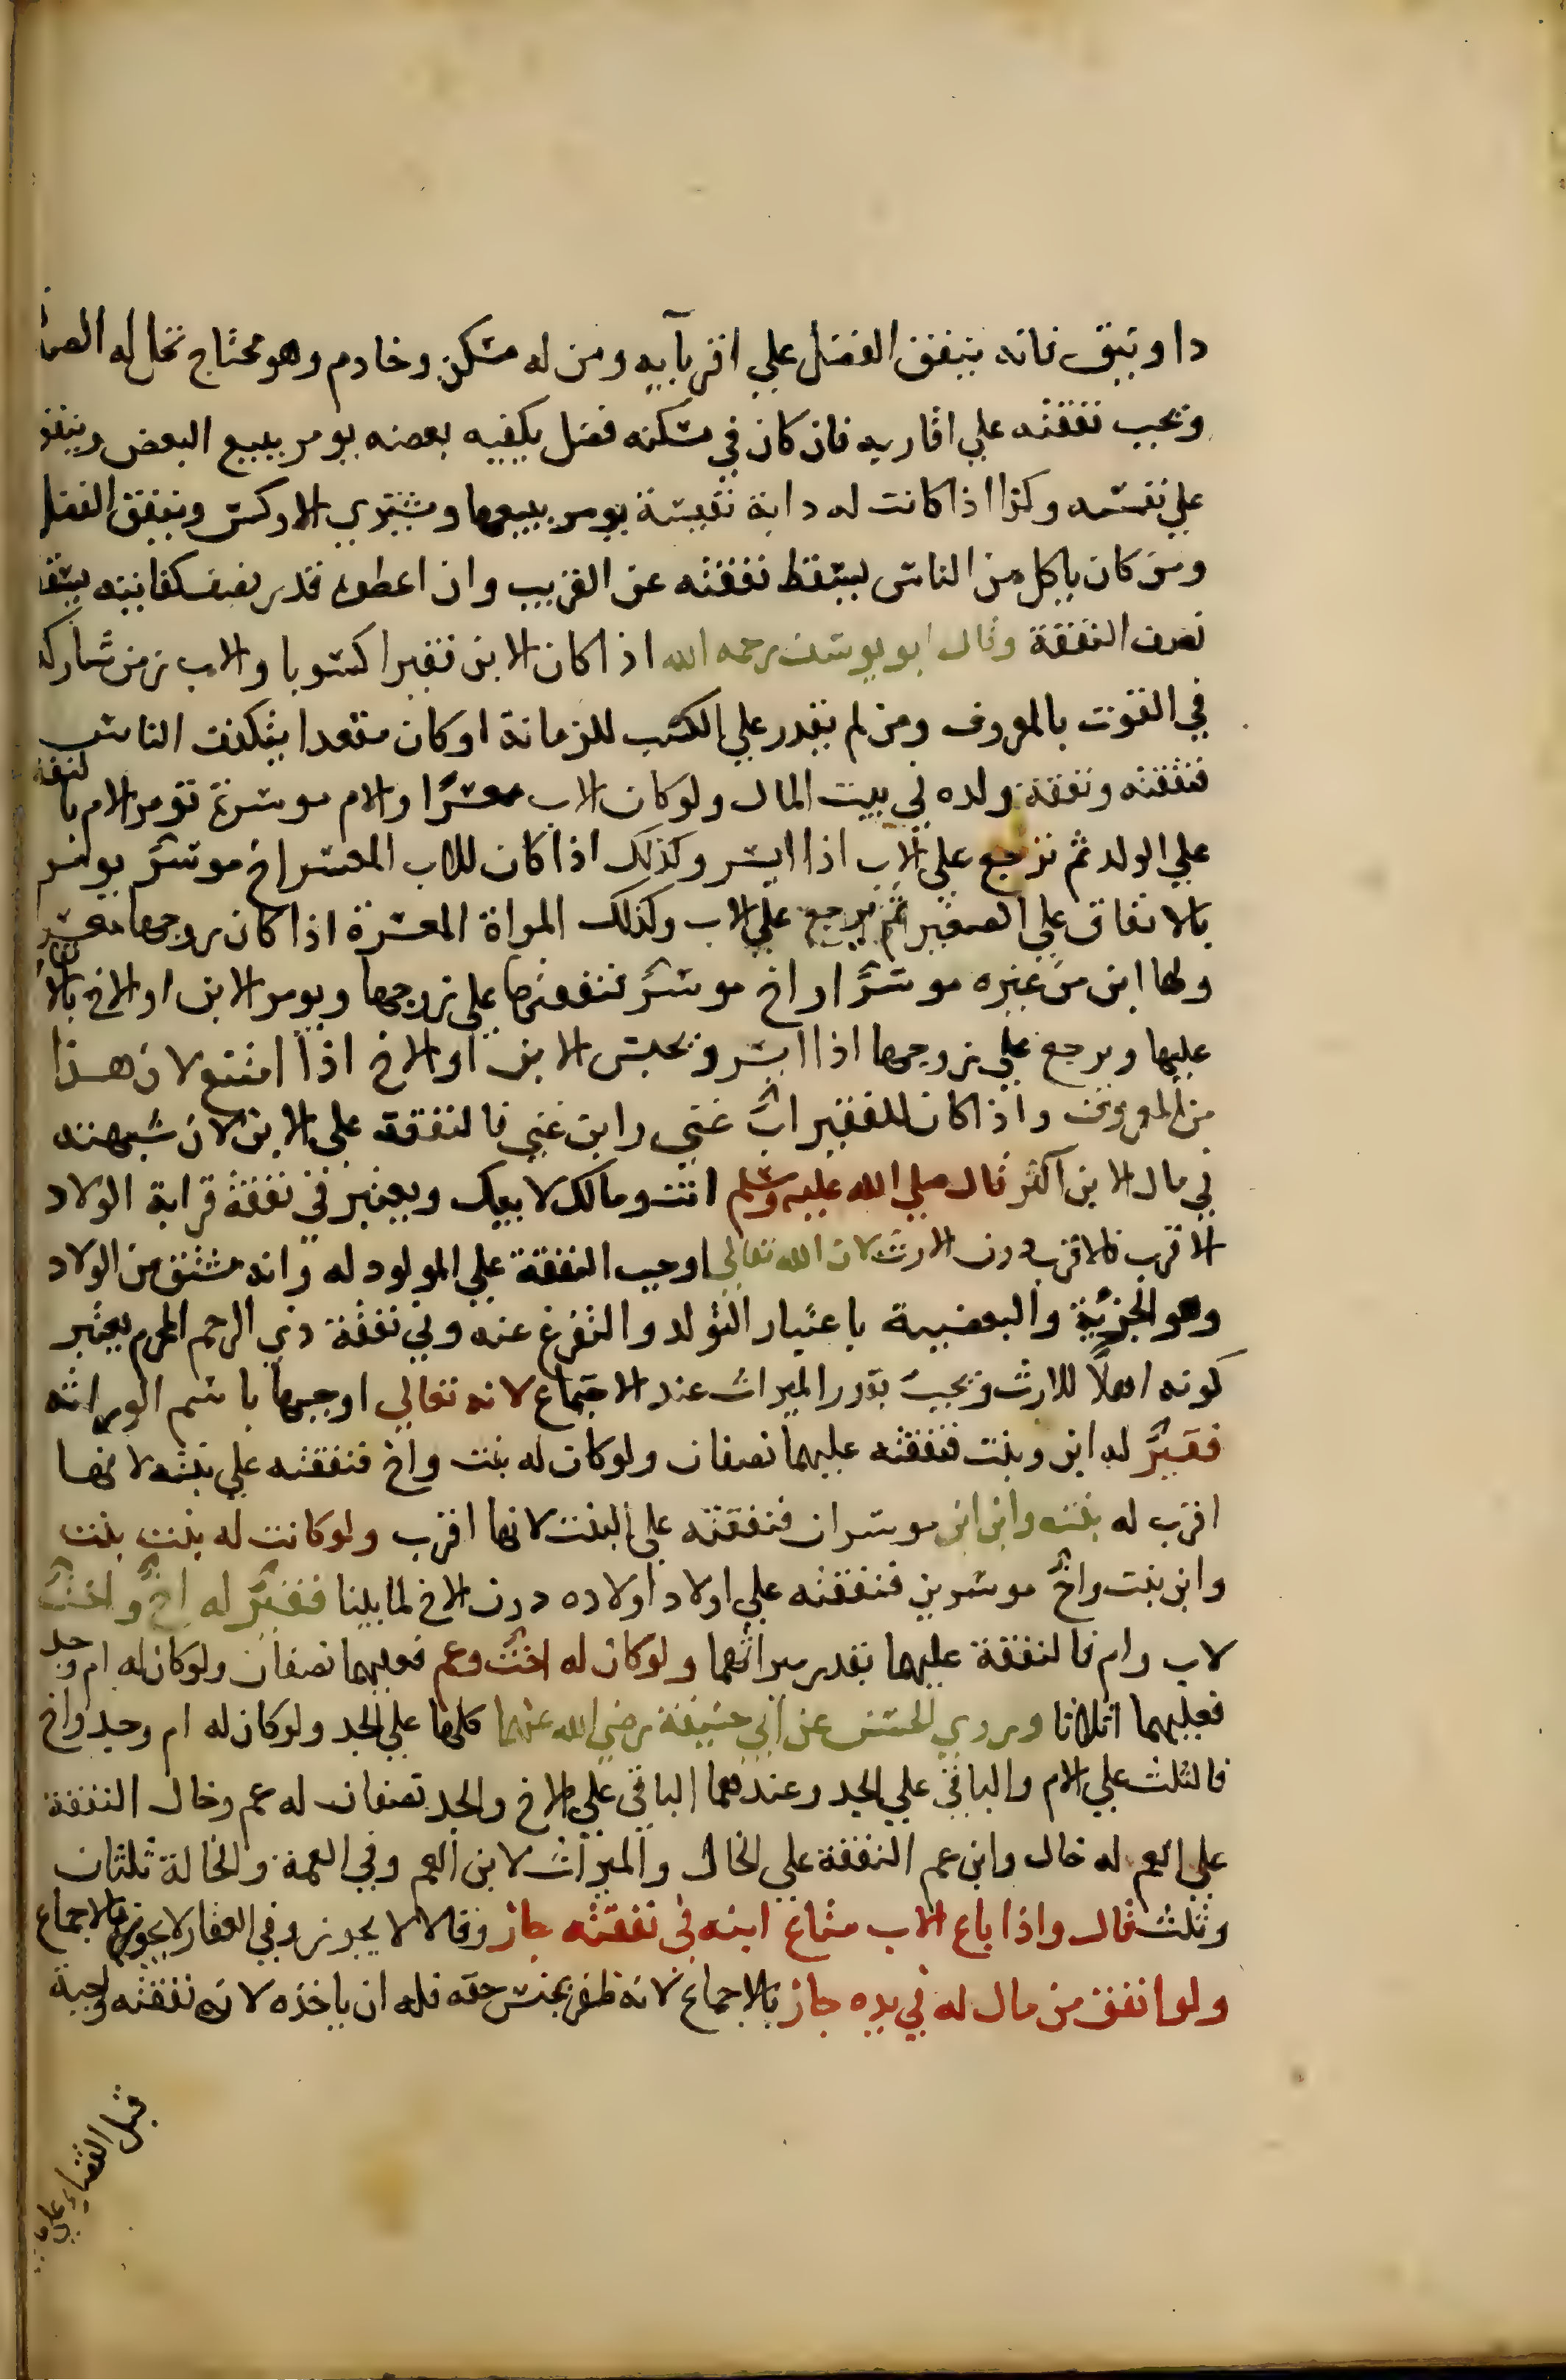 دا ونيق فانه ينفق الفضل علي اقربآيه ومن له مسكن وخادم وهو محتاج تحل له
وتجب نفقته علي اقاربه فان كان في مسكنه فضل يكفيه بعضه يومر ببيع البعض وينفق
علي نفسه وكذا اذا كانت له دابة نفيسة يومر ببيعها ويشتري الاوكس وينفق الفضل
ومن كان ياكل من الناس يسقط نفقته عن القريب وان اعطوه قدر نصف كفايته يسقط
نصف النفقة وقال ابو يوسف رحمه الله اذا كان الابن فقيرا كسوبا والاب زمن شاركه
في القوت بالمعروف ومن لم يقدر علي الكسب للزمانة او كان مقعدا يتكفف الناس
فنفقته ونفقة ولده في بيت المال ولو كان الاب معسرًا والام موسرة تومر الام بالنفقة
علي الولد ثم ترجع علي الاب اذا ايسر وكذلك اذا كان للاب المعسر اخ موسرٌ يومر
بالانفاق علي الصغير ثم يرجع علي الاب وكذلك المراة المعسرة اذا كان زوجها معسر
ولها ابن من غيره موسرٌ او اخ موسرٌ فنفقتها علي زوجها ويومر الابن او الاخ بالانفاق
عليها ويرجع علي زوجها اذا ايسر ويحبس الابن او الاخ اذا امتنع لان هذا
من المعروف واذا كان للفقير ابٌ غني وابن غني فالنفقة علي الابن لان شبهته
في مال الابن اكثر قال صلي الله عليه وسلم انت ومالك لابيك ويعتبر في نفقة قرابة الولاد
الاقرب فالاقرب دون الارث لان الله تعالي اوجب النفقة علي المولود له وانه مشتق من الولاد
وهو الجزئية والبعضية باعتبار التولد والتفرع عنه وفي نفقة ذي الرحم المحرم يعتبر
كونه اهلًا للارث وتجب بقدر الميراث عند الاجتماع لانه تعالي اوجبها باسم الوراثة
فقيرٌ له ابن وبنت فنفقته عليهما نصفان ولو كان له بنت واخ فنفقته علي بنته لانها
اقرب له بنت وابن ابن موسران فنفقته علي البنت لانها اقرب ولو كانت له بنت بنت
وابن بنت واخٌ موسرين فنفقته علي اولاد اولاده دون الاخ لما بينا فقيرٌ له اخٌ واختٌ
لاب وام فالنفقة عليهما بقدر ميراثهما ولو كان له اختٌ وعم فعليهما نصفان ولو كان له ام وجد
فعليهما اثلاثا وروي الحسن عن ابي حنيفة رضي الله عنهما كلها علي الجد ولو كان له ام وجد واخ
فالثلث علي الام والباقي علي الجد وعندهما الباقي علي الاخ والجد نصفان له عم وخال النفقة
علي العم له خال وابن عم النفقة علي الخال والميراث لابن العم وفي العمة والخالة ثلثان
وثلث قال واذا باع الاب متاع ابنه في نفقته جاز وقالا لا يجوز وفي العقار لا يجوز بالاجماع
ولو انفق من مال له في يده جاز بالاجماع لانه ظفر بجنس حقه فله ان ياخذه لان نفقته واجبة
قبل القضاء علي